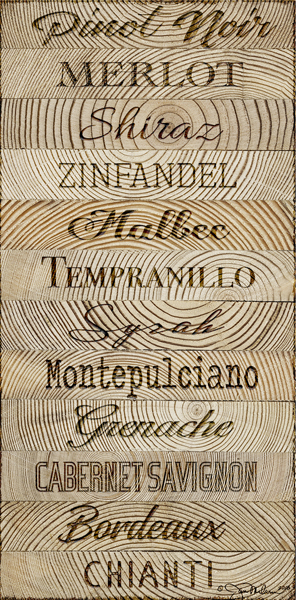 Pinot Noir
MERLOT
Shiraz
ZINFANDEL
Malbec
TEMPRANILLO
Syrah
Montepulciano
Grenache
CABERNET SAVIGNON
Bordeaux
CHIANTI